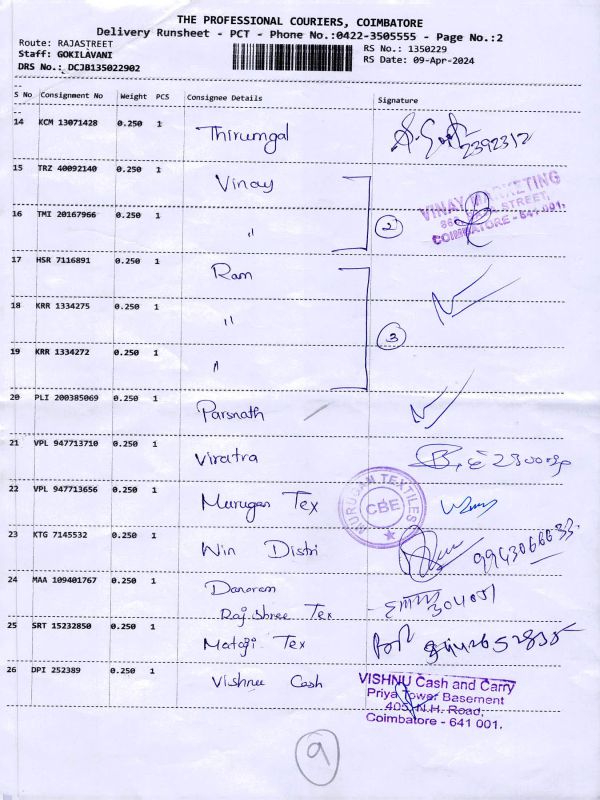 THE PROFESSIONAL COURIERS, COIMBATORE
Delivery Runsheet - PCT - Phone No.:0422-3505555 - Page No.:2
Route: RAJASTREET
RS No.: 1350229
Staff: GOKILAVANI
RS Date: 09-Apr-2024
DRS No.: DCJB135022902
S No Consignment No Weight PCS Consignee Details Signature
14 KCM 13071428 0.250 1 Thirumgal
2392312
15 TRZ 40092140 0.250 1 Vinay
VINAY MARKETING
STREET,
COIMBATORE - 641 001.
16 TMI 20167966 0.250 1 "
2
17 HSR 7116891 0.250 1 Ram
18 KRR 1334275 0.250 1 "
3
19 KRR 1334272 0.250 1 "
20 PLI 200385069 0.250 1 Parsnath
21 VPL 947713710 0.250 1 Viratra
22 VPL 947713656 0.250 1 Murugan Tex
MURUGAN TEXTILES
CBE
23 KTG 7145532 0.250 1 Win Distri
24 MAA 109401767 0.250 1 Danaram
Raj Shree Tex
304001
25 SRT 15232850 0.250 1 Mataji Tex
26 DPI 252389 0.250 1 Vishnu Cash
VISHNU Cash and Carry
Priya Tower Basement
405, N.H. Road,
Coimbatore - 641 001.
9